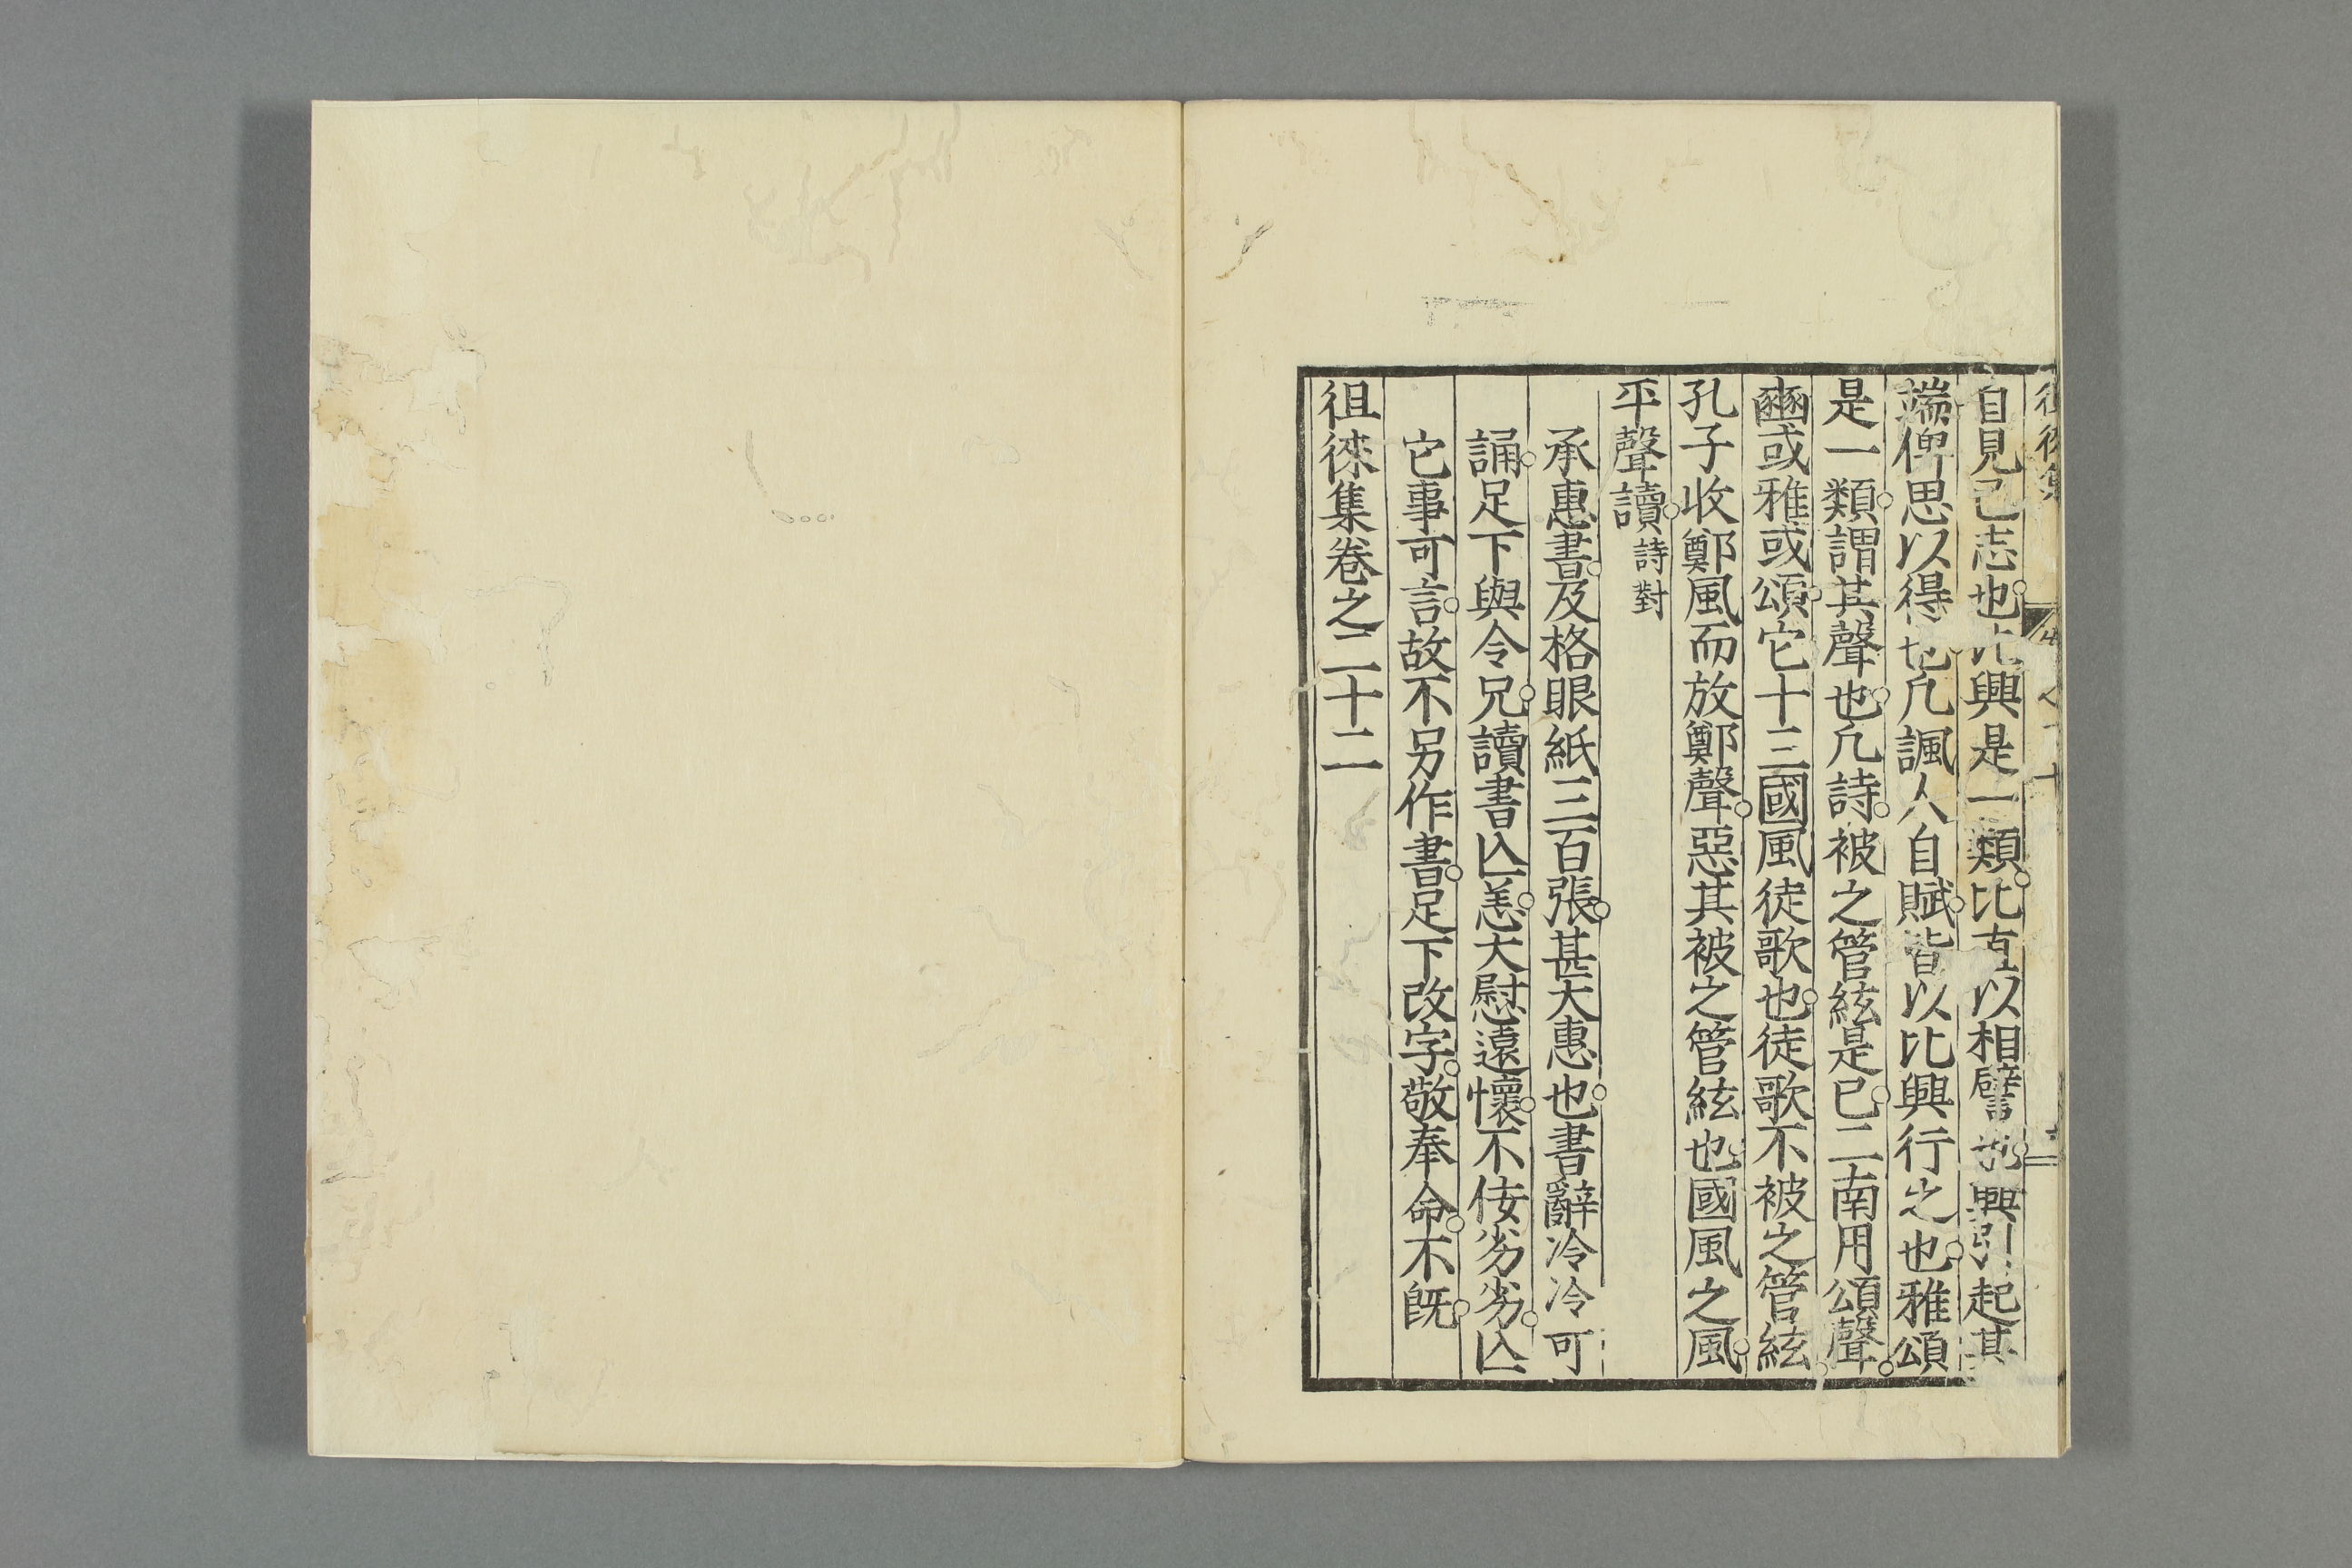 自見己志也比興是一類比直以相譬也興引起其
端俾思以得也凡諷人自賦皆以比興行之也雅頌
是一類謂其聲也凡詩被之管絃是已二南用頌聲
豳或雅或頌它十三國風徒歌也徒歌不被之管絃
孔子收鄭風而放鄭聲惡其被之管絃也國風之風
平聲讀詩對
承惠書及格眼紙三百張甚大惠也書辭冷冷可
誦足下與令兄讀書亾恙大慰遠懷不佞劣劣亾
它事可言故不另作書足下改字敬奉命不既
徂徠集卷之二十二